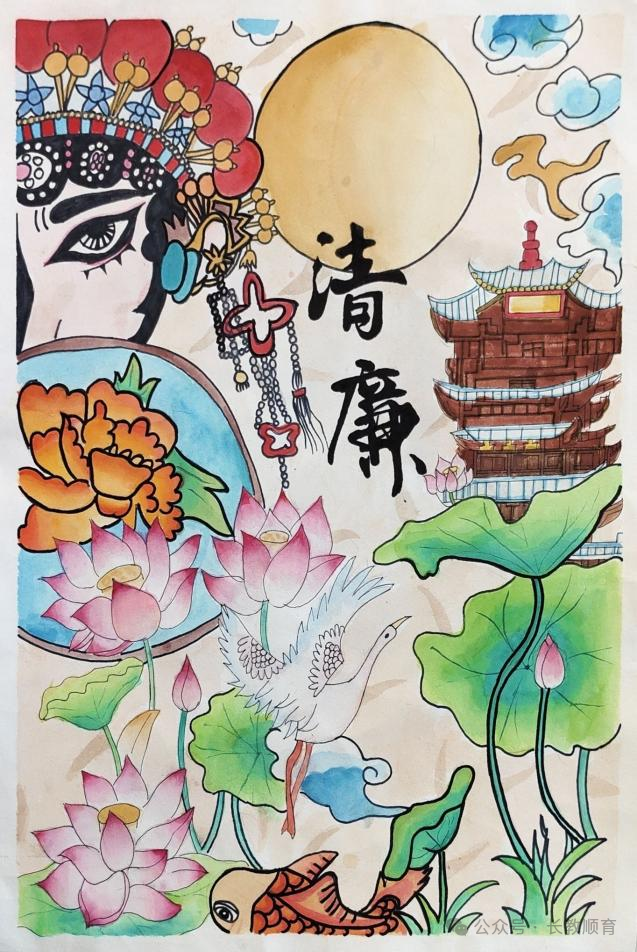 清
廉
公众号 · 长教顺育